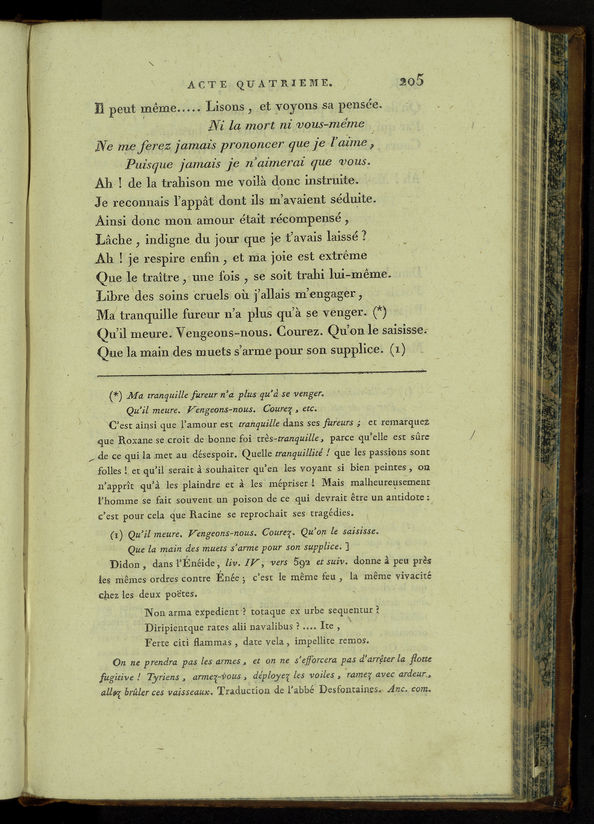 ACTE QUATRIEME. 205
Il peut même..... Lisons, et voyons sa pensée.
Ni la mort ni vous-même
Ne me ferez jamais prononcer que je l'aime,
Puisque jamais je n'aimerai que vous.
Ah ! de la trahison me voilà donc instruite.
Je reconnais l'appât dont ils m'avaient séduite.
Ainsi donc mon amour était récompensé,
Lâche, indigne du jour que je t'avais laissé ?
Ah ! je respire enfin, et ma joie est extrême
Que le traître, une fois, se soit trahi lui-même.
Libre des soins cruels où j'allais m'engager,
Ma tranquille fureur n'a plus qu'à se venger. (*)
Qu'il meure. Vengeons-nous. Courez. Qu'on le saisisse.
Que la main des muets s'arme pour son supplice. (1)
(*) Ma tranquille fureur n'a plus qu'à se venger.
Qu'il meure. Vengeons-nous. Courez, etc.
C'est ainsi que l'amour est tranquille dans ses fureurs ; et remarquez
que Roxane se croit de bonne foi très-tranquille, parce qu'elle est sûre
de ce qui la met au désespoir. Quelle tranquillité ! que les passions sont
folles ! et qu'il serait à souhaiter qu'en les voyant si bien peintes, on
n'apprît qu'à les plaindre et à les mépriser ! Mais malheureusement
l'homme se fait souvent un poison de ce qui devrait être un antidote :
c'est pour cela que Racine se reprochait ses tragédies.
(1) Qu'il meure. Vengeons-nous. Courez. Qu'on le saisisse.
Que la main des muets s'arme pour son supplice. ]
Didon, dans l'Énéide, liv. IV, vers 592 et suiv. donne à peu près
les mêmes ordres contre Énée ; c'est le même feu, la même vivacité
chez les deux poëtes.
Non arma expedient ? totaque ex urbe sequentur ?
Diripientque rates alii navalibus ? .... Ite,
Ferte citi flammas, date vela, impellite remos.
On ne prendra pas les armes, et on ne s'efforcera pas d'arrêter la flotte
fugitive ! Tyriens, armez-vous, déployez les voiles, ramez avec ardeur,
allez brûler ces vaisseaux. Traduction de l'abbé Desfontaines. Anc. com.